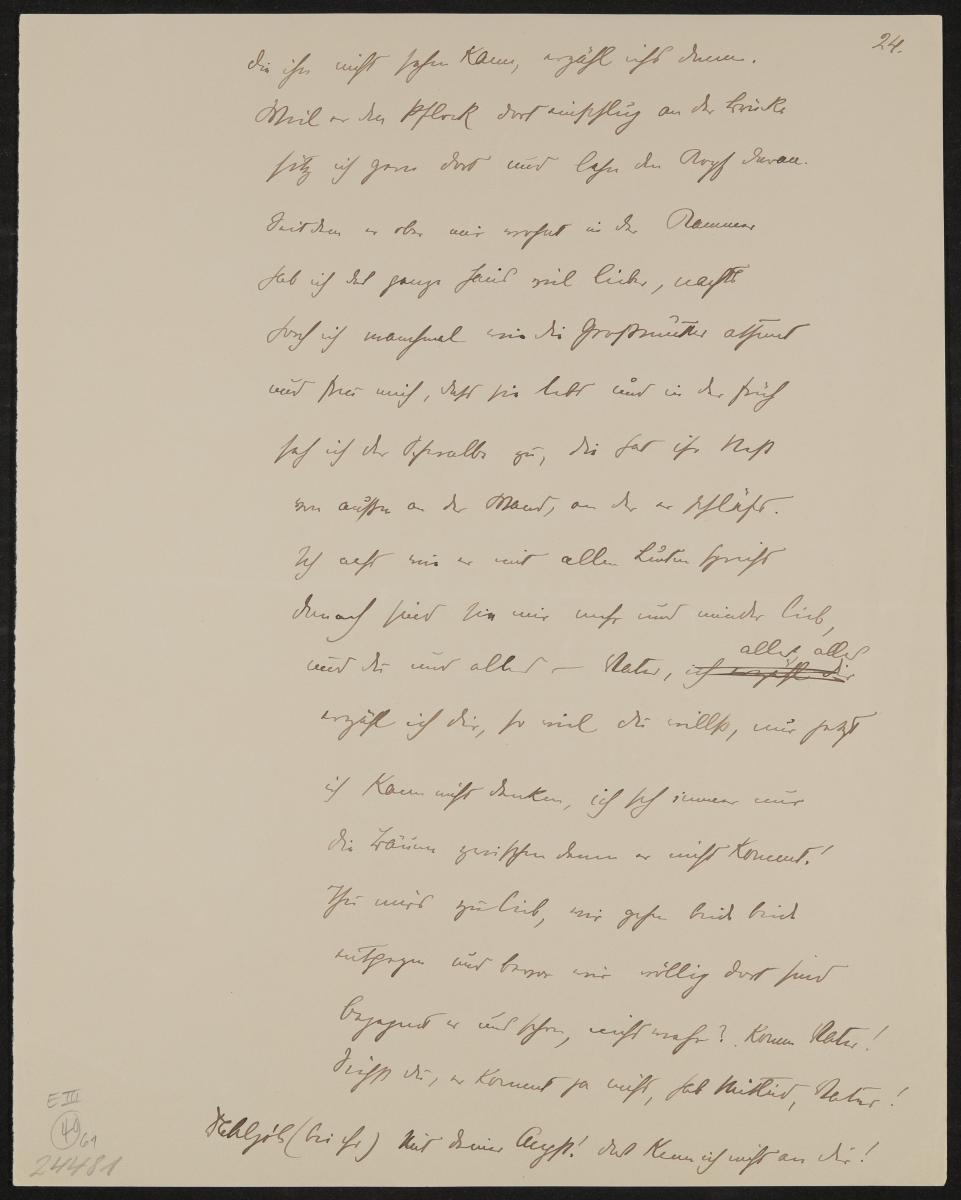 24.
die ihn nicht sehen kann, erzähl ichs denn.
Weil er den Pflock dort einschlug an der Brücke
sitz ich gern dort und lehn den Kopf daran.
Seitdem er ober mir wohnt in der Kammer
hab ich das ganze Haus viel lieber, nachts
horch ich manchmal wie die Großmutter athmet
und freu mich, dass sie lebt und in der früh
seh ich der Schwalbe zu, die hat ihr Nest
von außen an der Wand, an der er schläft.
Ich acht wie er mit allen Leuten spricht
danach sind sie mir mehr und minder lieb,
alles, alles
und du und alles – Vater, ich erzähle dir
erzähl ich dir, so viel du willst, nur jetzt
ich kann nicht denken, ich seh immer nur
die Bäume zwischen denen er nicht kommt!
Thu mirs zulieb, wir gehen beide beide
entgegen und bevor wir völlig dort sind
begegnet er uns schon, nicht wahr? Komm Vater!
Siehst du, er kommt ja nicht, hab Mitleid, Vater!
(bei ihr) Mit deiner Angst! das kenn ich nicht an dir!
E III
49
61
24481